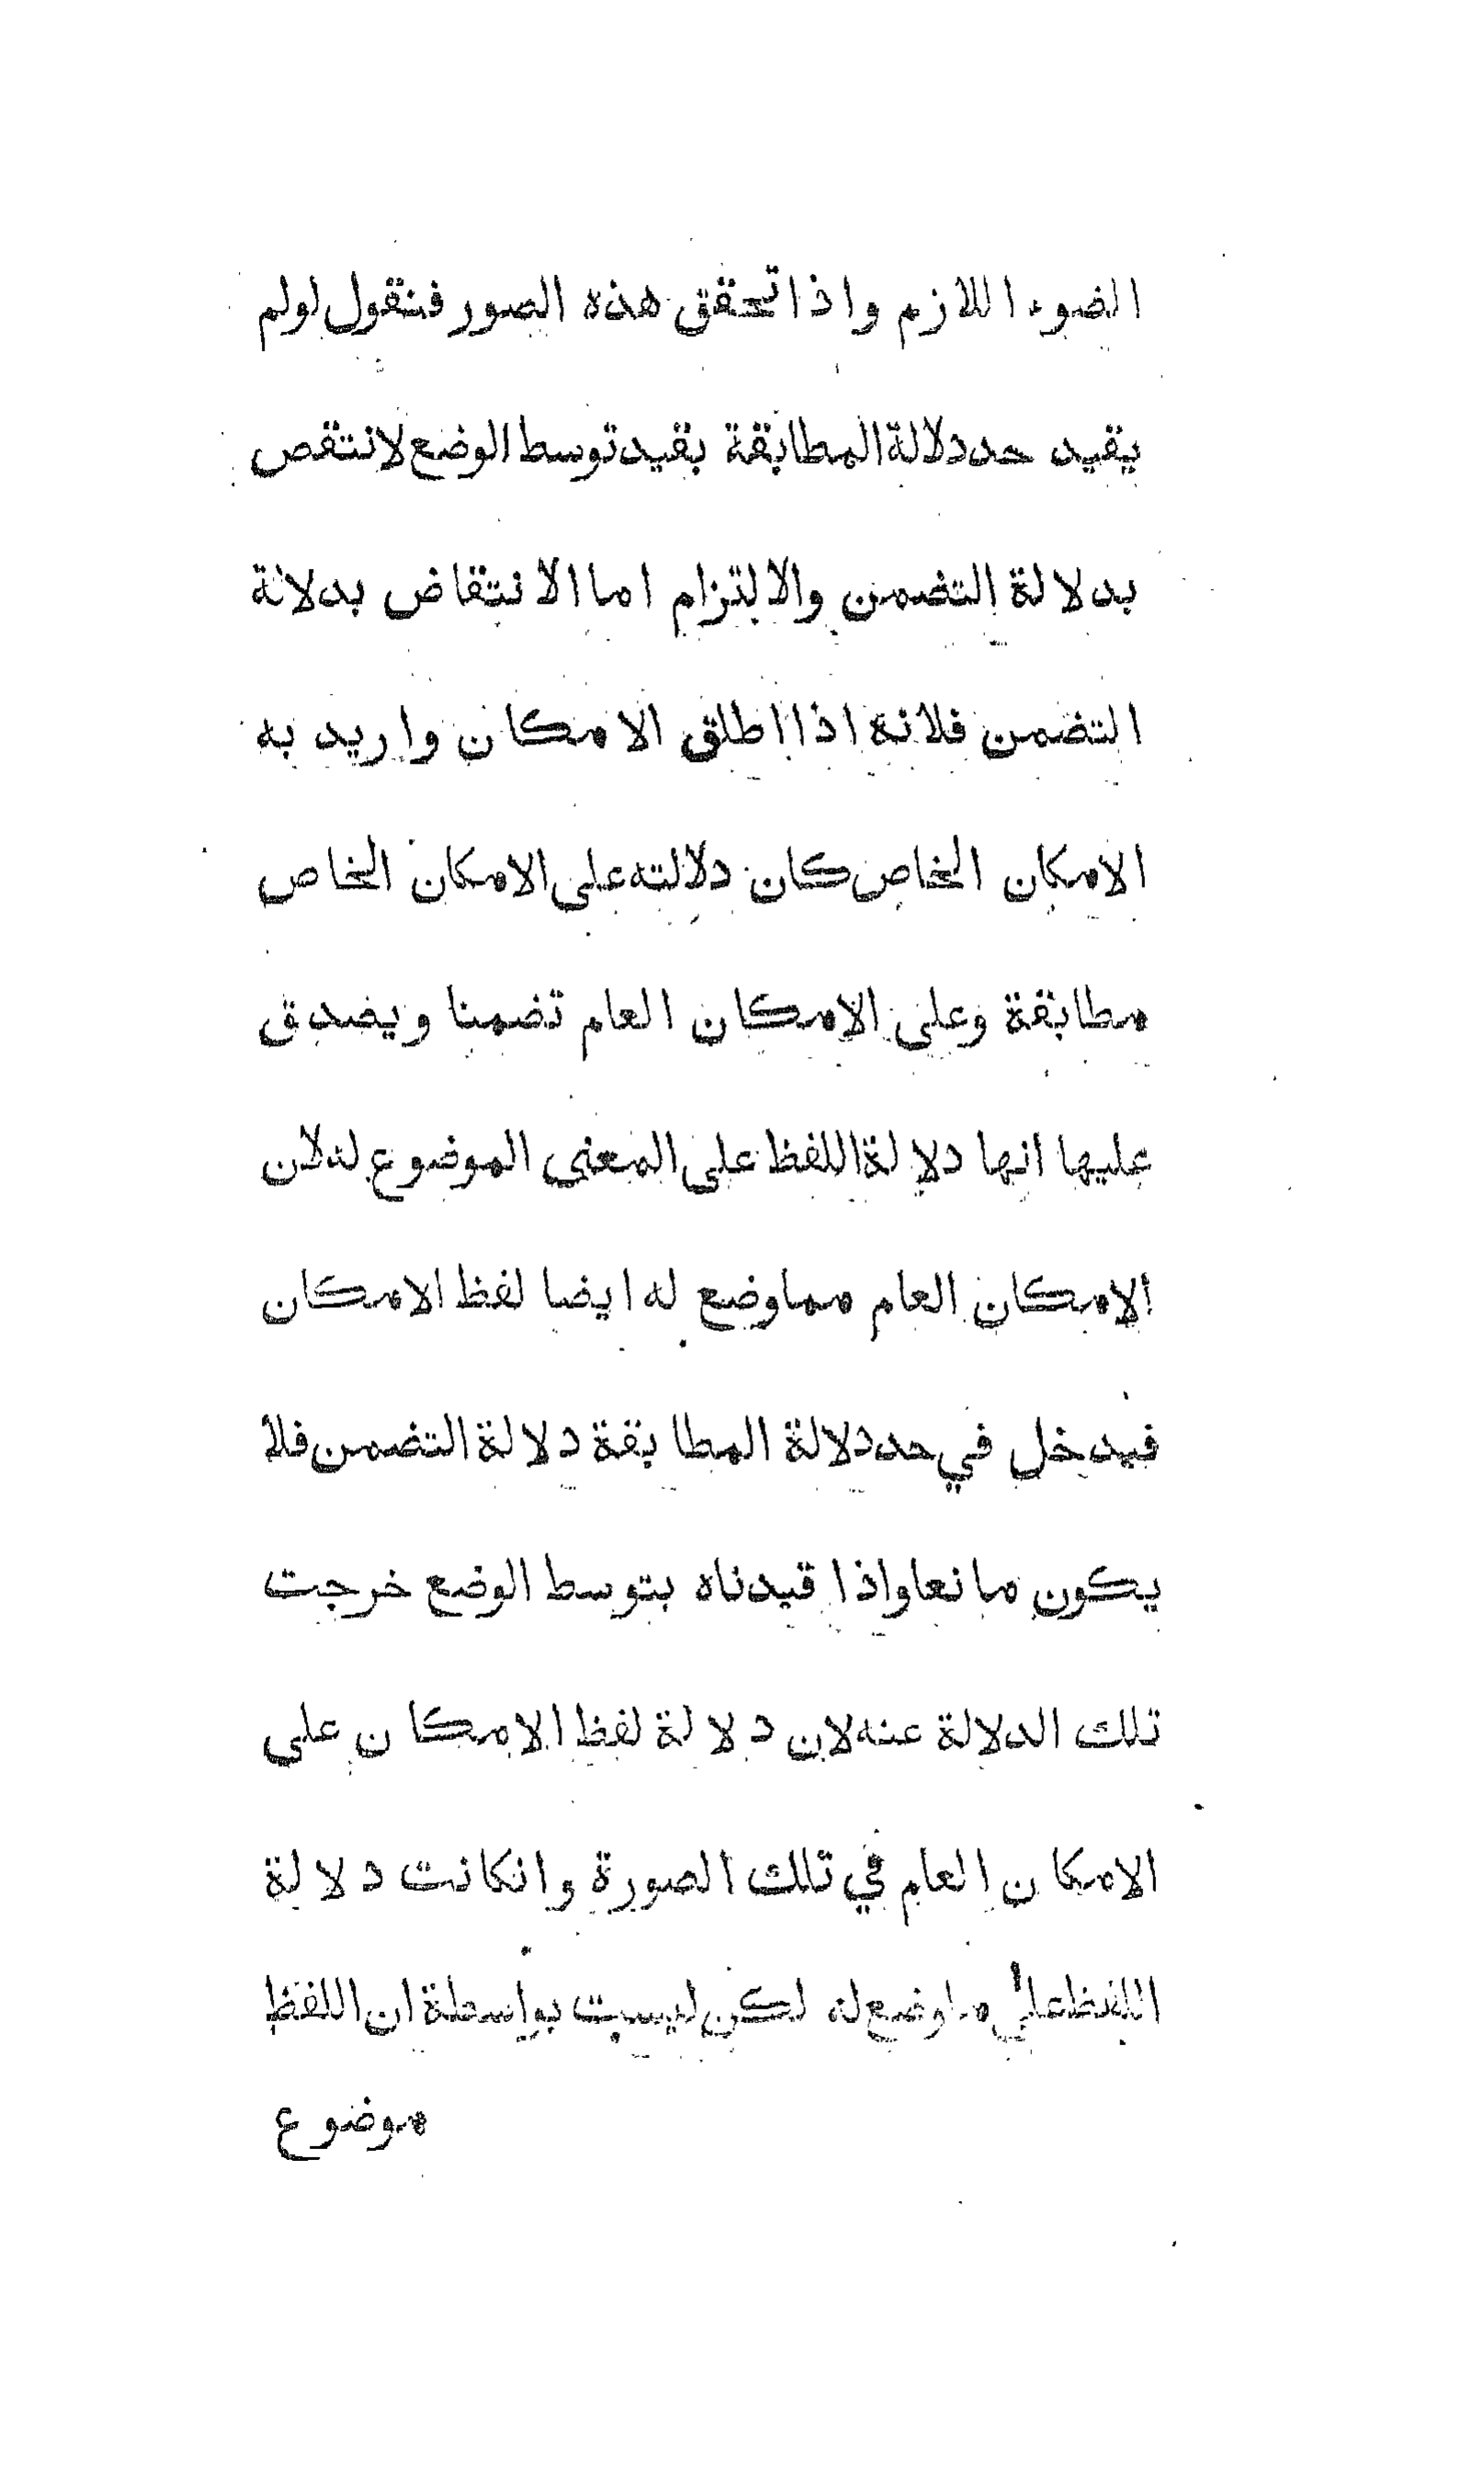 الضوء اللازم واذا تحقق هذه الصور فنقول لولم
يقيد حد دلالة المطابقة بقيد توسط الوضع لانتقص
بدلالة التضمن والالتزام اما الانتقاض بدلالة
التضمن فلانه اذا اطلق الامكان واريد به
الامكان الخاص كان دلالته على الامكان الخاص
مطابقة وعلى الامكان العام تضمنا ويصدق
عليها انها دلالة اللفظ على المعنى الموضوع له لان
الامكان العام مما وضع له ايضا لفظ الامكان
فيدخل في حد دلالة المطابقة دلالة التضمن فلا
يكون مانعا واذا قيدناه بتوسط الوضع خرجت
تلك الدلالة عنه لان دلالة لفظ الامكان على
الامكان العام في تلك الصورة وانكانت دلالة
اللفظ على ما وضع له لكن ليست بواسطة ان اللفظ
موضوع